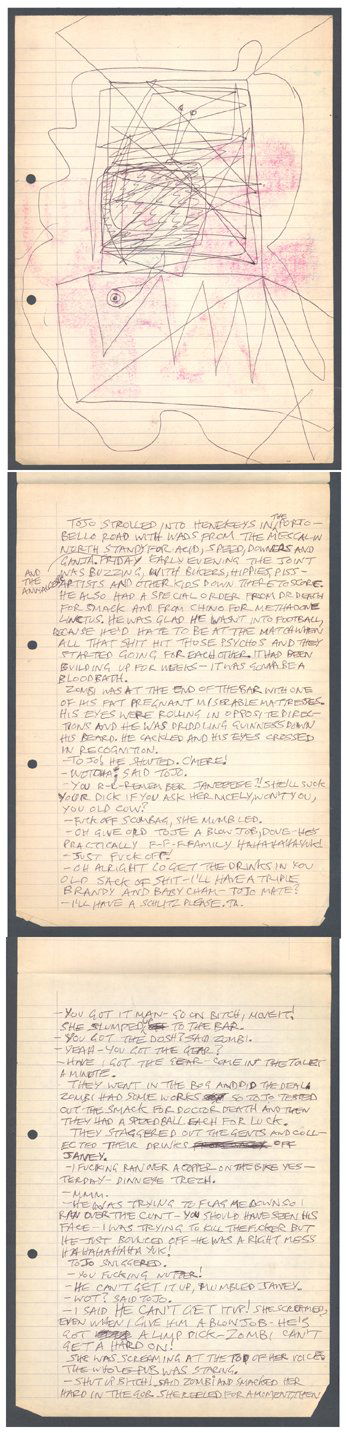 TOJO STROLLED INTO HENEKEYS IN THE PORTO-
BELLO ROAD WITH WADS FROM THE MESCAL-IN
NORTH STAND FOR ACID, SPEED, DOWNERS AND
GANJA. FRIDAY EARLY EVENING THE JOINT
WAS BUZZING, WITH BIKERS, HIPPIES, PISS-
AND THE
ARTISTS AND OTHER KIDS DOWN THERE TO SCORE.
HE ALSO HAD A SPECIAL ORDER FROM DR DEATH
FOR SMACK AND FROM CHINO FOR METHADONE
LINCTUS. HE WAS GLAD HE WASNT INTO FOOTBALL,
HE'D HATE TO BE AT THE MATCH WHEN
ALL THAT SHIT HIT THOSE PSYCHOS AND THEY
STARTED GOING FOR EACH OTHER. IT HAD BEEN
BUILDING UP FOR WEEKS - IT WAS GONNA BE A
BLOODBATH.
ZOMBI WAS AT THE END OF THE BAR WITH ONE
OF HIS FAT PREGNANT MISERABLE MATTRESSES.
HIS EYES WERE ROLLING IN OPPOSITE DIREC-
TIONS AND HE WAS DRIDDLING GUINNESS DOWN
HIS BEARD. HE CACKLED AND HIS EYES CROSSED
IN RECOGNITION.
- TOJO! HE SHOUTED. C'MERE!
- WOTCHA, SAID TOJO.
- YOU R-R-REMEMBER JANEEEEE?! SHE'LL SUCK
YOUR DICK IF YOU ASK HER NICELY, WON'T YOU,
YOU OLD COW?
- FUCK OFF SCUMBAG, SHE MUMBLED.
- OH GIVE OLD TOJE A BLOW JOB, DOVE - HE'S
PRACTICALLY F-F-FFAMILY HAHAHAHAYUK!
- JUST FUCK OFF!
- OH ALRIGHT GO GET THE DRINKS IN YOU
OLD SACK OF SHIT - I'LL HAVE A TRIPLE
BRANDY AND BABYCHAM - TOJO MATE?
- I'LL HAVE A SCHLITZ PLEASE. TA.
- YOU GOT IT MAN - GO ON BITCH, MOVE IT!
SHE SLUMPED UP TO THE BAR.
- YOU GOT THE DOSH? SAID ZOMBI.
- YEAH - YOU GOT THE GEAR?
- HAVE I GOT THE GEAR - COME IN THE TOILET
A MINUTE.
THEY WENT IN THE BOG AND DID THE DEAL.
ZOMBI HAD SOME WORKS SO TOJO TESTED
OUT THE SMACK FOR DOCTOR DEATH AND THEN
THEY HAD A SPEEDBALL EACH FOR LUCK.
THEY STAGGERED OUT THE GENTS AND COLL-
ECTED THEIR DRINKS OFF
JANEY.
- I FUCKING RAN OVER A COPPER ON THE BIKE YES-
TERDAY - DINNEYE TREZH.
- MMM.
- HE WAS TRYING TO FLAG ME DOWN SO I
RAN OVER THE CUNT - YOU SHOULD HAVE SEEN HIS
FACE - I WAS TRYING TO KILL THE FUCKER BUT
HE JUST BOUNCED OFF - HE WAS A RIGHT MESS
HAHAHAHAHA YUK!
TOJO SNIGGERED.
- YOU FUCKING NUTTER!
- HE CAN'T GET IT UP, MUMBLED JANEY.
- WOT? SAID TOJO.
- I SAID HE CAN'T GET IT UP! SHE SCREAMED,
EVEN WHEN I GIVE HIM A BLOWJOB - HE'S
GOT A LIMP DICK - ZOMBI CAN'T
GET A HARD ON!
SHE WAS SCREAMING AT THE TOP OF HER VOICE.
THE WHOLE PUB WAS STARING.
- SHUT UP BITCH! SAID ZOMBI AND SMACKED HER
HARD IN THE GOB. SHE REELED FOR A MOMENT, THEN